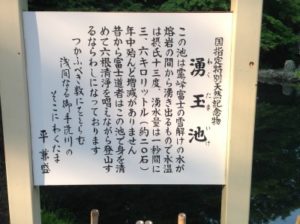 国指定特別天然記念物
湧玉池
この池は霊峰富士の雪解けの水が
熔岩の間から湧き出るもので水温
は摂氏十三度、湧水量は一秒間に
三、六キロリットル（約二〇石）
年中殆んど増減がありません
昔から富士道者はこの池で身を清
めて六根清浄を唱えながら登山す
るならわしになっております
つかふべき数にをとらむ
浅間なる御手洗川の
そこにわく玉
平兼盛